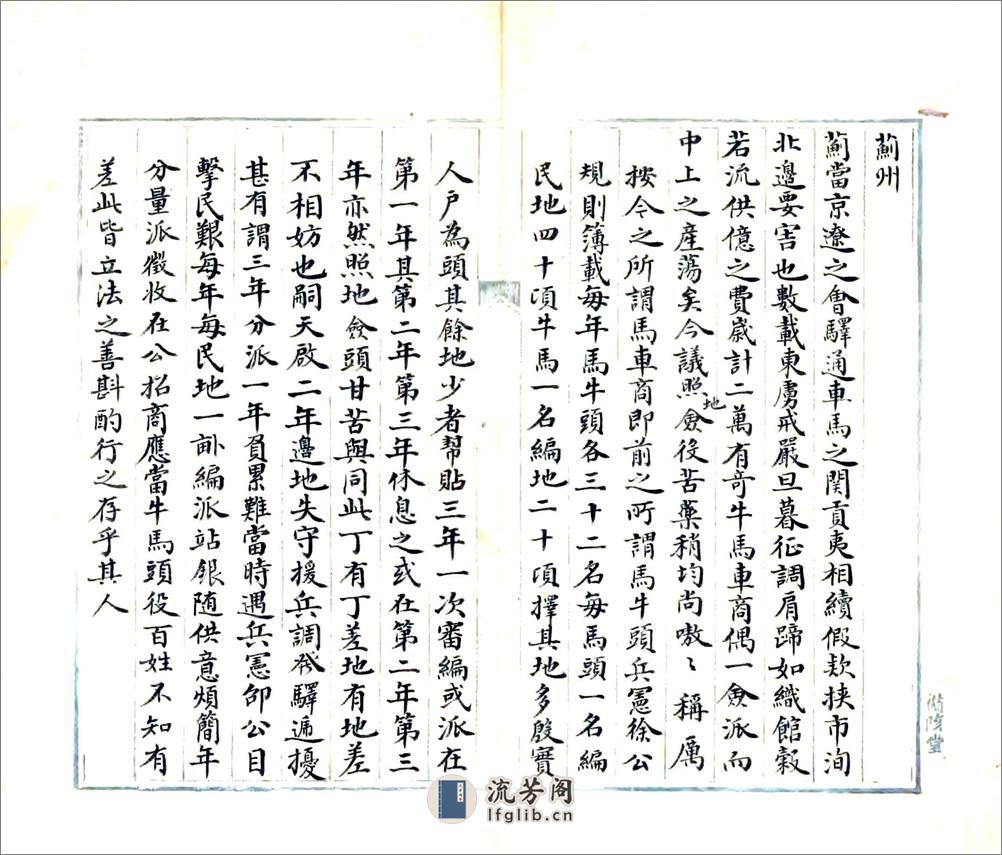 薊州
薊當京遼之會驛通車馬之関貢夷相續假欵挟市洵
北邊要害也數載東虜戒嚴旦暮征調肩蹄如織館穀
若流供億之費歳計二萬有竒牛馬車商偶一僉派而
中上之産蕩矣今議照地僉役苦藥稍均尚嗷〻稱厲
按今之所謂馬車商即前之所謂馬牛頭兵憲徐公
規則簿載每年馬牛頭各三十二名每馬頭一名編
民地四十頃牛馬一名編地二十頃擇其地多殷實
人戶為頭其餘地少者幫貼三年一次審編或派在
第一年其第二年第三年休息之或在第二年第三
年亦然照地僉頭甘苦與同此丁有丁差地有地差
不相妨也嗣天啟二年邊地失守援兵調發驛遞擾
甚有謂三年分派一年負累難當時遇兵憲邵公目
擊民艱每年每民地一畝編派站銀随供意煩簡年
分量派徵收在公招商應當牛馬頭役百姓不知有
差此皆立法之善斟酌行之存乎其人
流芳阁
lfglib.cn